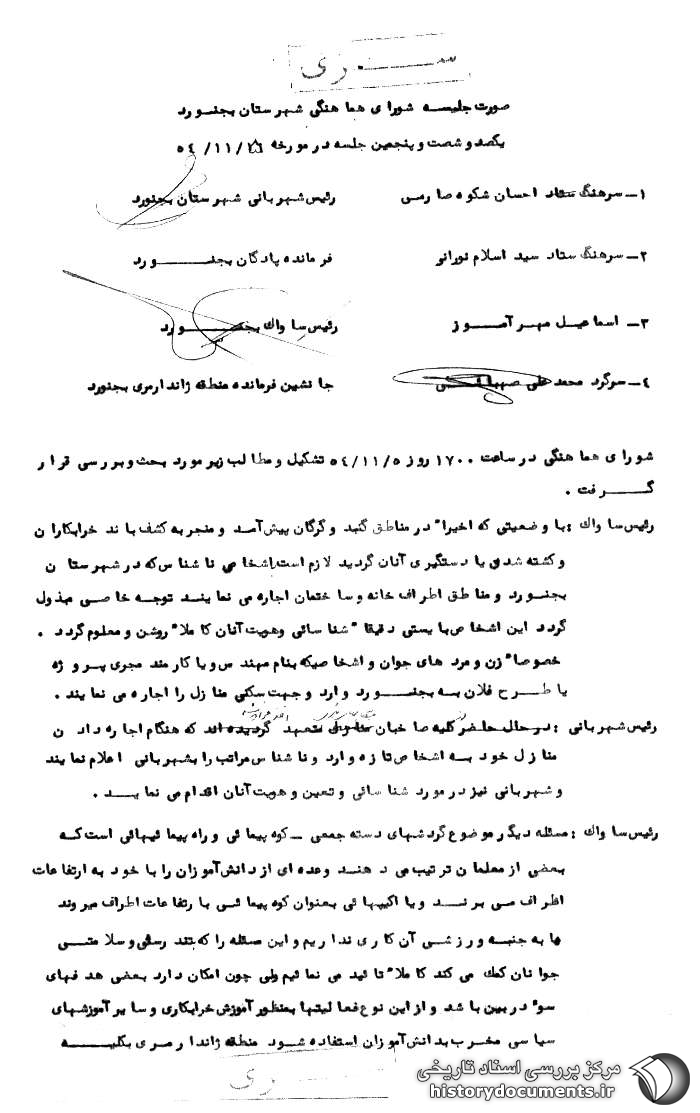 ســـری
صورت جلسه شورای هماهنگی شهرستان بجنورد
یکصد و شصت و پنجمین جلسه در مورخه ۵۴/۱۱/
۱ـ سرهنگ ستاد احسان شکوه صارمی رئیس شهربانی شهرستان بجنورد
۲ـ سرهنگ ستاد سید اسلام نورانو فرمانده پادگان بجنـــورد
۳ـ اسماعیل مهرآمـوز رئیس ساواک بجنـــورد
۴ـ سرگرد محمد علی جانشین فرمانده منطقه ژاندارمری بجنورد
شورای هماهنگی در ساعت ۱۷۰۰ روز ۵۴/۱۱/۵ تشکیل و مطالب زیر مورد بحث و بررسی قرار
گـــرفت .
رئیس ساواک : با وضعیتی که اخیرا" در مناطق گنبد و گرگان پیش آمد و منجر به کشف باند خرابکاران
و کشته شدن یا دستگیری آنان گردید لازم است اشخاص ناشناس که در شهرستان
بجنـورد و مناطق اطراف خانه و ساختمان اجاره می نمایند توجه خاصی مبذول
گردد این اشخاص بایستی دقیقا" شناسائی وهویت آنان کاملا" روشن و معلوم گردد .
خصوصا" زن و مرد های جوان و اشخاصیکه بنام مهندس و یا کارمند مجری پروژه
یا طرح فلان به بجنـــورد وارد و جهت سکنی منازل را اجاره می نمایند .
رئیس شهربانی : در حال حاضر کلیه صاحبان منازل متعهد گردیده اند که هنگام اجاره دادن
منازل خود به اشخاص تازه وارد و ناشناس مراتب را بشهربانی اعلام نمایند
و شهربانی نیز در مورد شناسائی و تعین و هویت آنان اقدام می نمایـــد .
رئیس ساواک : مسئله دیگر موضوع گردشهای دسته جمعی ـ کوه پیمائی و راه پیمائیهائی است که
بعضی از معلمان ترتیب می دهند و عده ای از دانش آموزان را با خود به ارتفاعات
اطراف می برنـد و یا اکیپهائی بعنوان کوه پیمائـی با رتفاعات اطراف میروند
ما به جنبه ورزشی آن کاری نداریم و این مسئله را که بتند رستی و سلامتـی
جوانان کمک می کند کاملا" تائید می نمائیم ولی چون امکان دارد بعضی هدفهای
سوء در بین باشد و از این نوع فعالیتها بمنظور آموزش خرابکاری و سایر آموزشهای
سیاسی مخرب بدانش آموزان استفاده شود منطقه ژاندارمری بکلیـــه
ســـری
مرکز بررسی اسناد تاریخی
historydocuments.ir